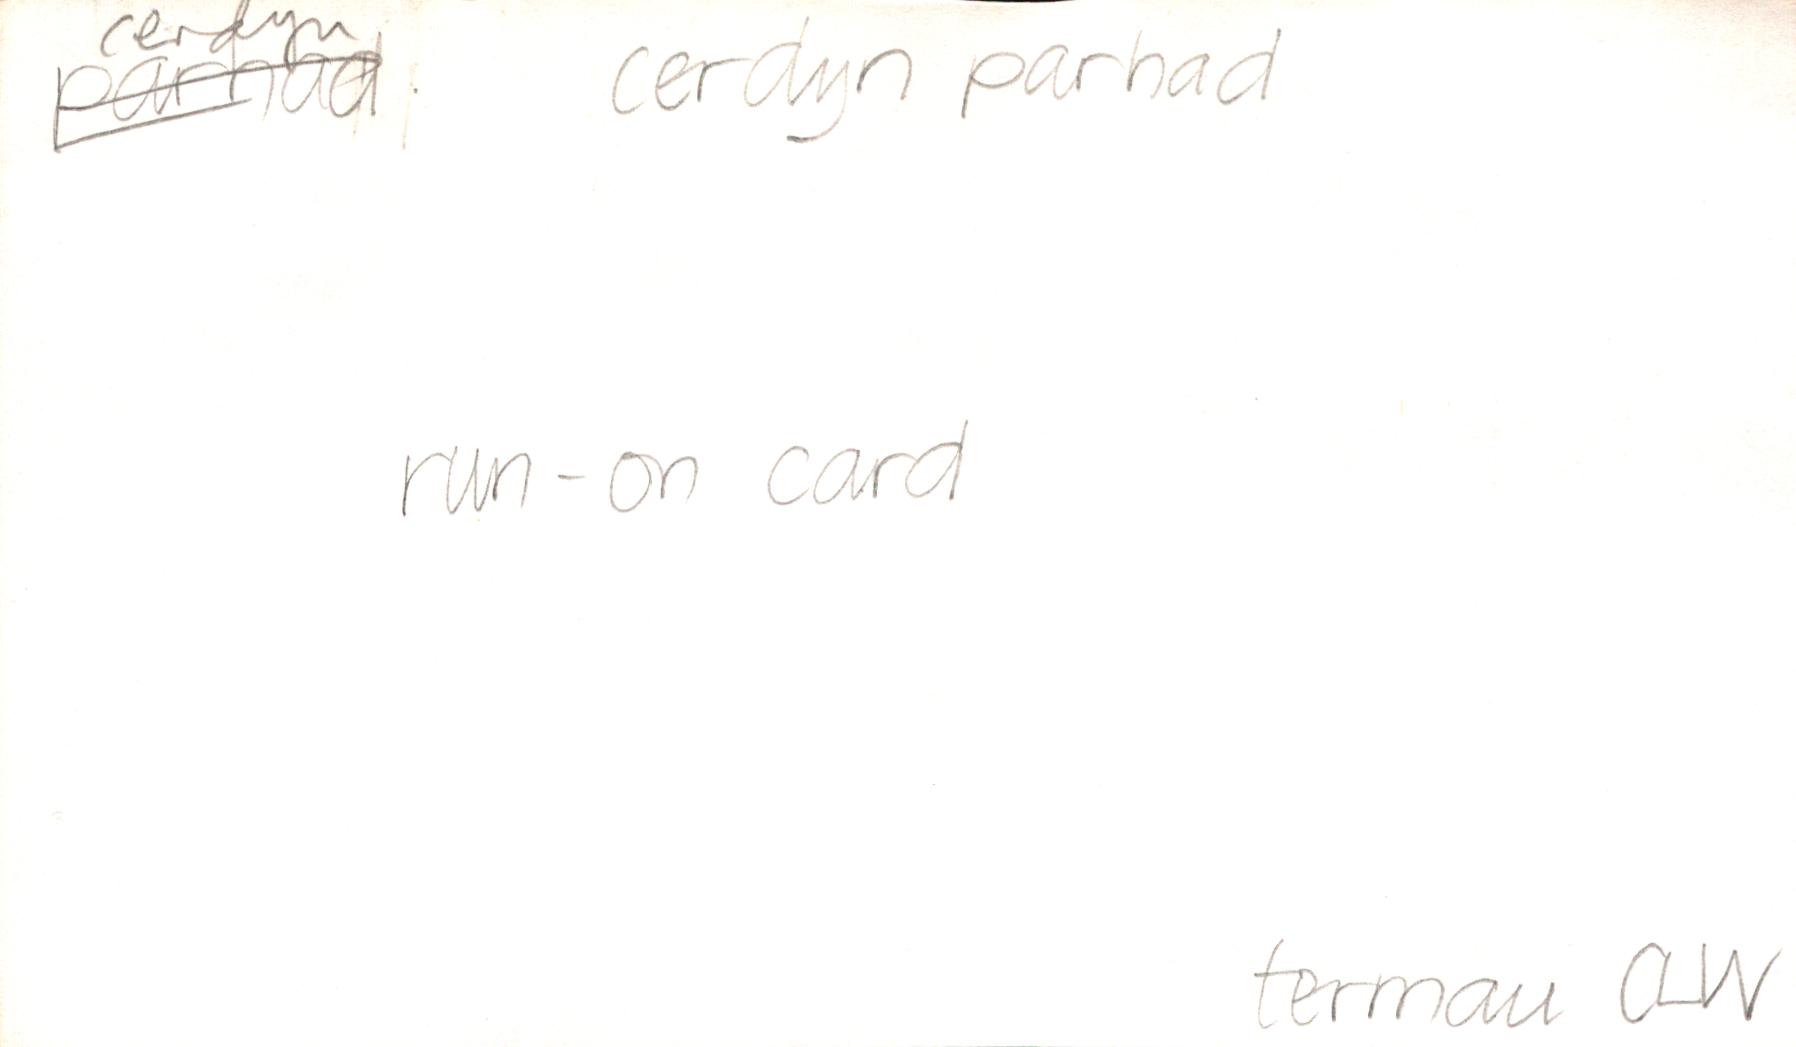 cerdyn
parhad. cerdyn parhad
run-on card
termau CLlW